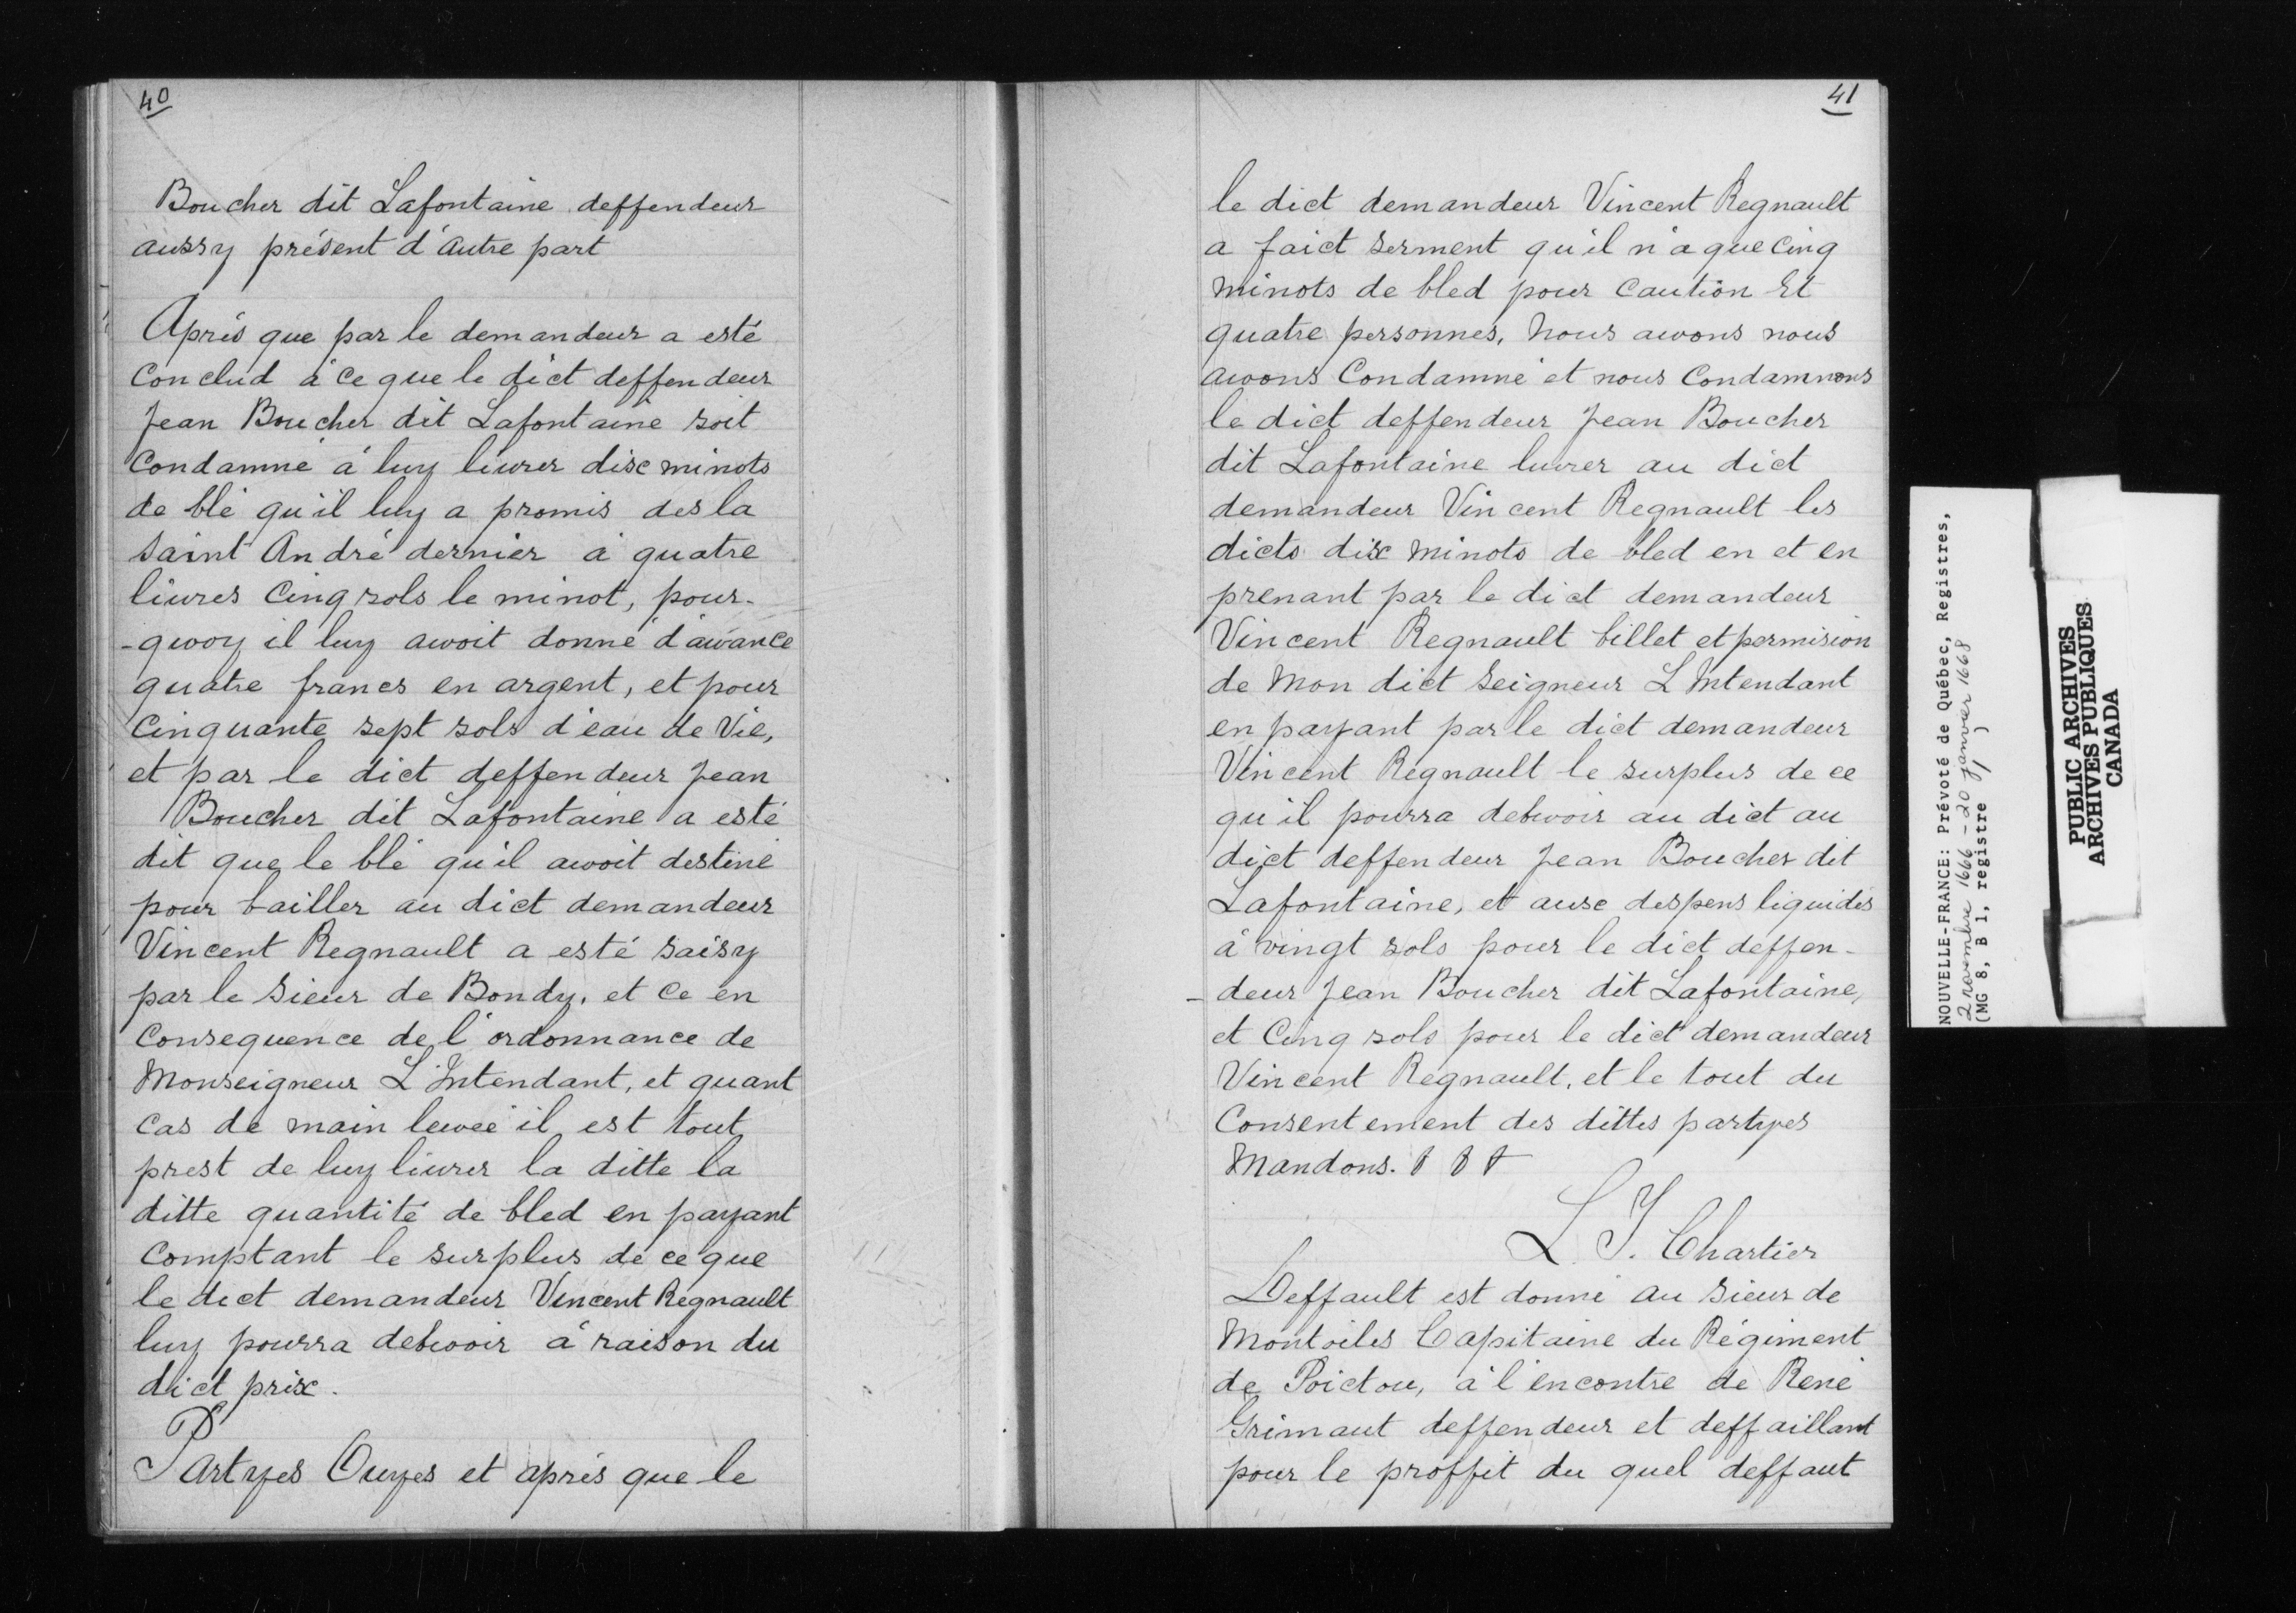 40
Boucher dit Lafontaine deffendeur
aussy présent d'autre part
Après que par le demandeur a esté
Conclud à ce que le dict deffendeur
Jean Boucher dit Lafontaine soit
Condamné à luy liurer dix minots
de blé qu'il luy a promis des la
saint André dernier à quatre
liures Cinq sols le minot, pour-
-qwoy il luy awoit donné d'awance
quatre francs en argent, et pour
Cinquante sept sols d'eau de Vie,
et par le dict deffendeur Jean
Boucher dit Lafontaine a esté
dit que le blé qu'il awoit destiné
pour bailler au dict demandeur
Vincent Regnault a esté saisy
par le Sieur de Bondy, et ce en
Consequence de l'ordonnance de
Monseigneur L'Intendant, et quant
cas de main lewée il est tout
prest de luy liurer la ditte la
ditte quantité de bled en payant
Comptant le surplus de ce que
le dict demandeur Vincent Regnault
luy pourra debwoir à raison du
dict prix.
Partyes Ouyes et après que le
41
le dict demandeur Vincent Regnault
a faict serment qu'il n'a que Cinq
minots de bled pour Caution Et
quatre personnes, Nous awons nous
awons Condamné et nous Condamnons
le dict deffendeur Jean Boucher
dit Lafontaine liurer au dict
demandeur Vincent Regnault les
dicts dix minots de bled en et en
prenant par le dict demandeur
Vincent Regnault billet et permision
de Mon dict Seigneur L'Intendant
en payant par le dict demandeur
Vincent Regnault le surplus de ce
qu'il pourra debwoir au dict au
dict deffendeur Jean Boucher dit
Lafontaine, et aux despens liquidés
à vingt sols pour le dict deffen-
-deur Jean Boucher dit Lafontaine,
et Cinq sols pour le dict demandeur
Vincent Regnault, et le tout du
Consentement des dittes partyes
Mandons.
L. T. Chartier
Deffault est donné au Sieur de
Montoiles Capitaine du Régiment
de Poictou, à l'encontre de René
Grimaut deffendeur et deffaillant
pour le proffit du quel deffaut
NOUVELLE-FRANCE: Prévoté de Québec, Registres,
2 novembre 1666 - 20 janvier 1668
(MG 8, B 1, registre 1)
PUBLIC ARCHIVES
ARCHIVES PUBLIQUES
CANADA